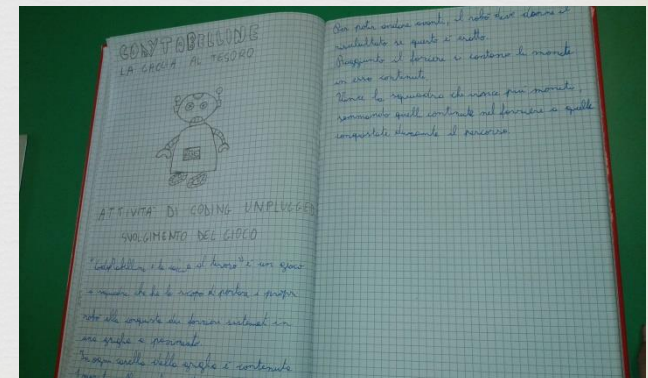 CODYTABELLINE
LA CACCIA AL TESORO
ATTIVITA' DI CODING UNPLUGGED
SVOLGIMENTO DEL GIOCO
"CodyTabelline e la caccia al tesoro" è un gioco
a squadre che ha lo scopo di portare i propri
robot alla conquista dei forzieri sistemati in
una griglia a pavimento.
In ogni casella della griglia è contenuta
Per poter andare avanti, il robot deve dare il
risultato se questo è esatto.
Raggiunto il forziere si contano le monete
in esso contenute.
Vince la squadra che ha più monete,
sommando quelle contenute nel forziere a quelle
conquistate durante il percorso.